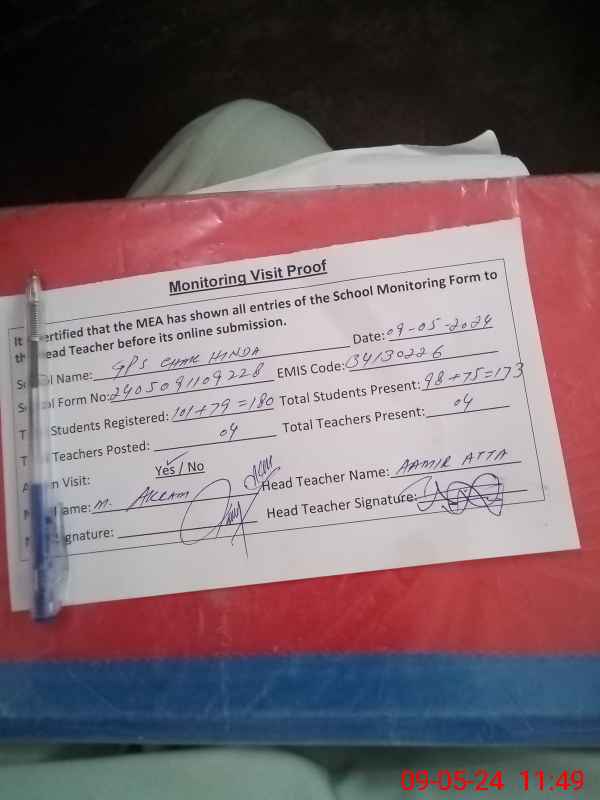 Monitoring Visit Proof
It ertified that the MEA has shown all entries of the School Monitoring Form to
th ead Teacher before its online submission.
S l Name: GPS CHAK HINDA Date: 09-05-2024
S l Form No: 2405091109228 EMIS Code: 34130226
T Students Registered: 101+79=180 Total Students Present: 98+75=173
T Teachers Posted: 04 Total Teachers Present: 04
A n Visit: Yes / No
ame: M. AKRAM Head Teacher Name: AAMIR ATTA
gnature: Head Teacher Signature:
09-05-24 11:49